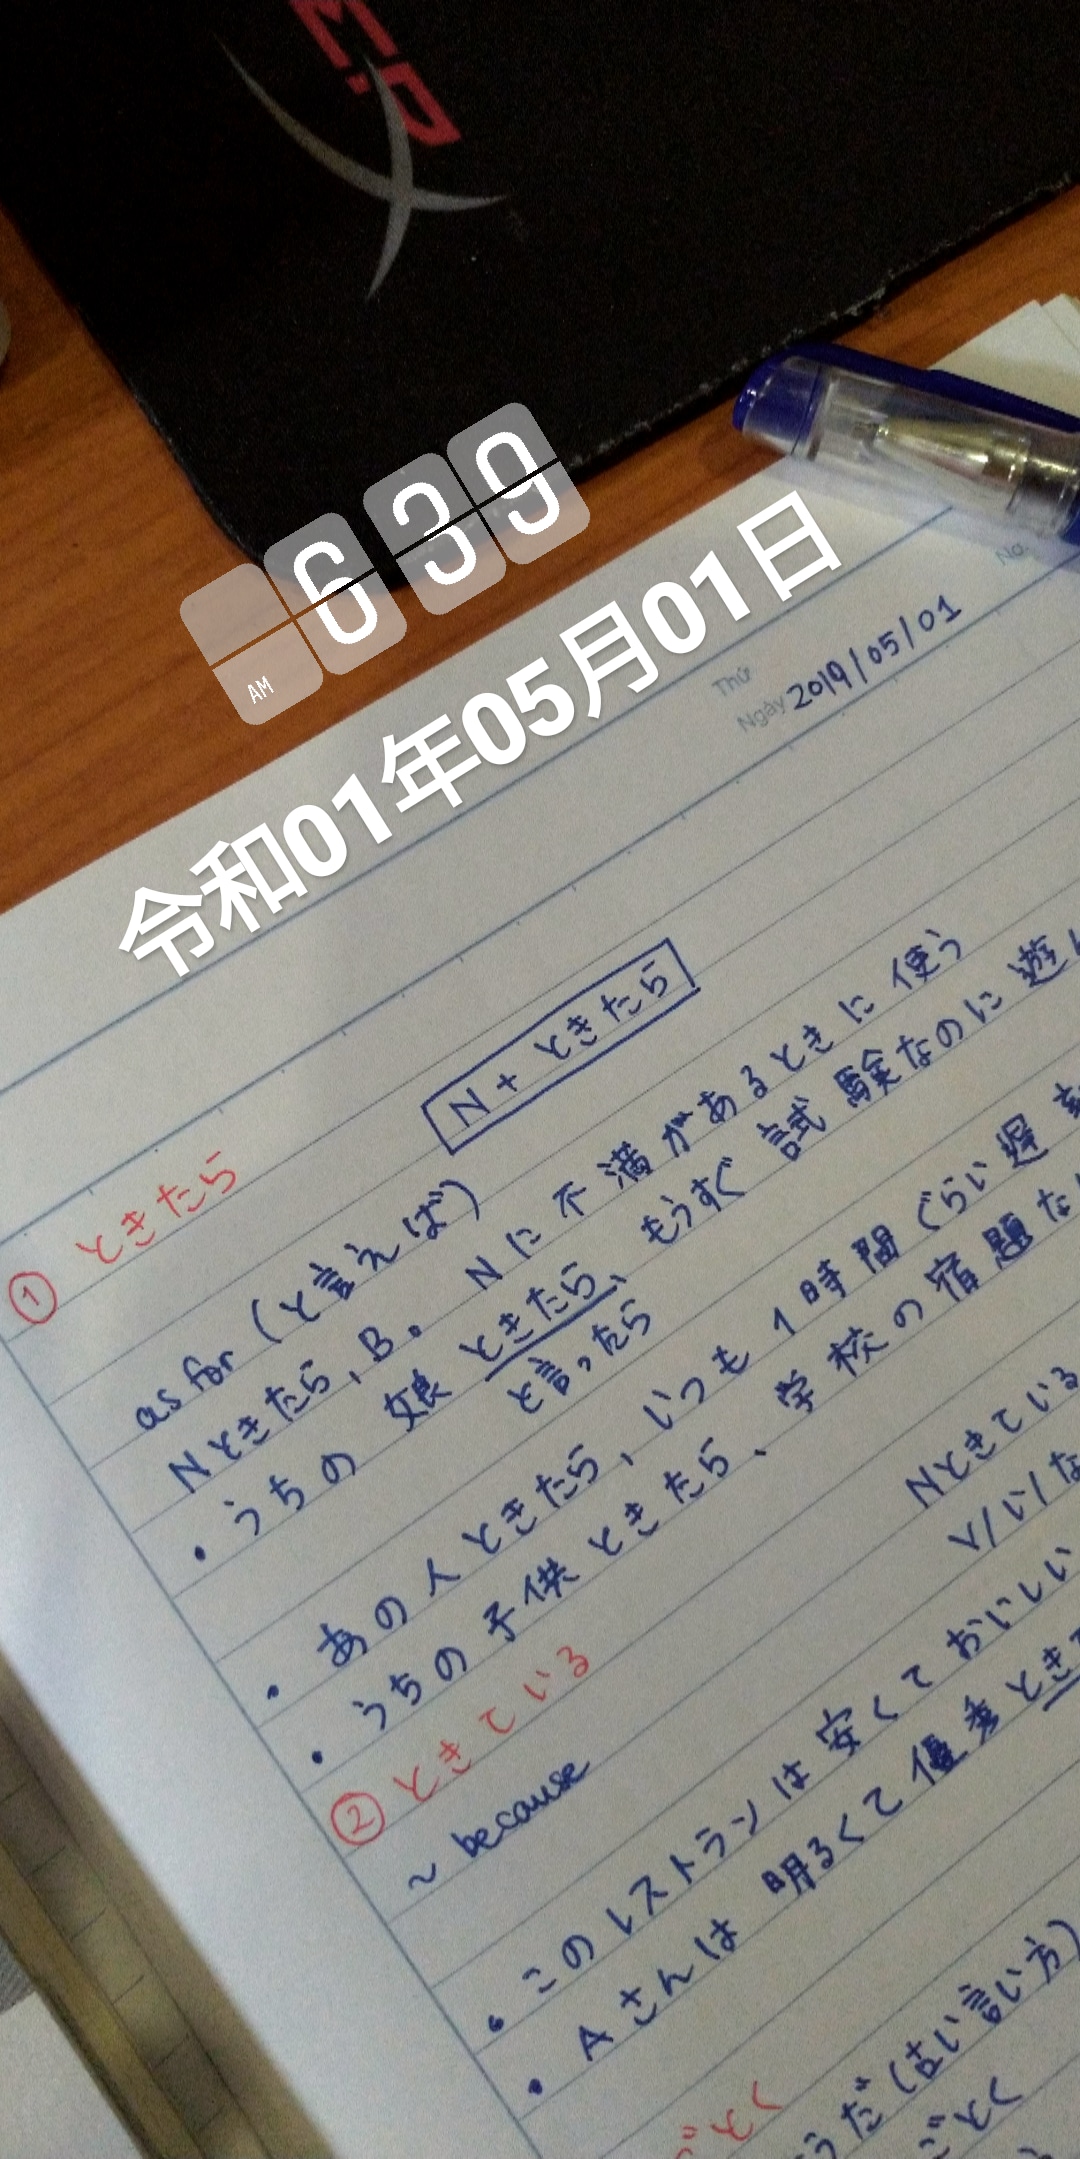 639
AM
令和01年05月01日
Thứ
Ngày 2019/05/01
No.
① ときたら
N + ときたら
as for (と言えば)
Nときたら, B。 Nに不満があるときに使う
• うちの娘ときたら、もうすぐ試験なのに遊
と言ったら
• あの人ときたら, いつも1時間ぐらい遅
• うちの子供ときたら、学校の宿題な
② ときている
Nときている
~ because
V/い/な
• このレストランは安くておいしい
• Aさんは明るくて優秀とき
ごとく
うだ(古い言い方)
ごとく